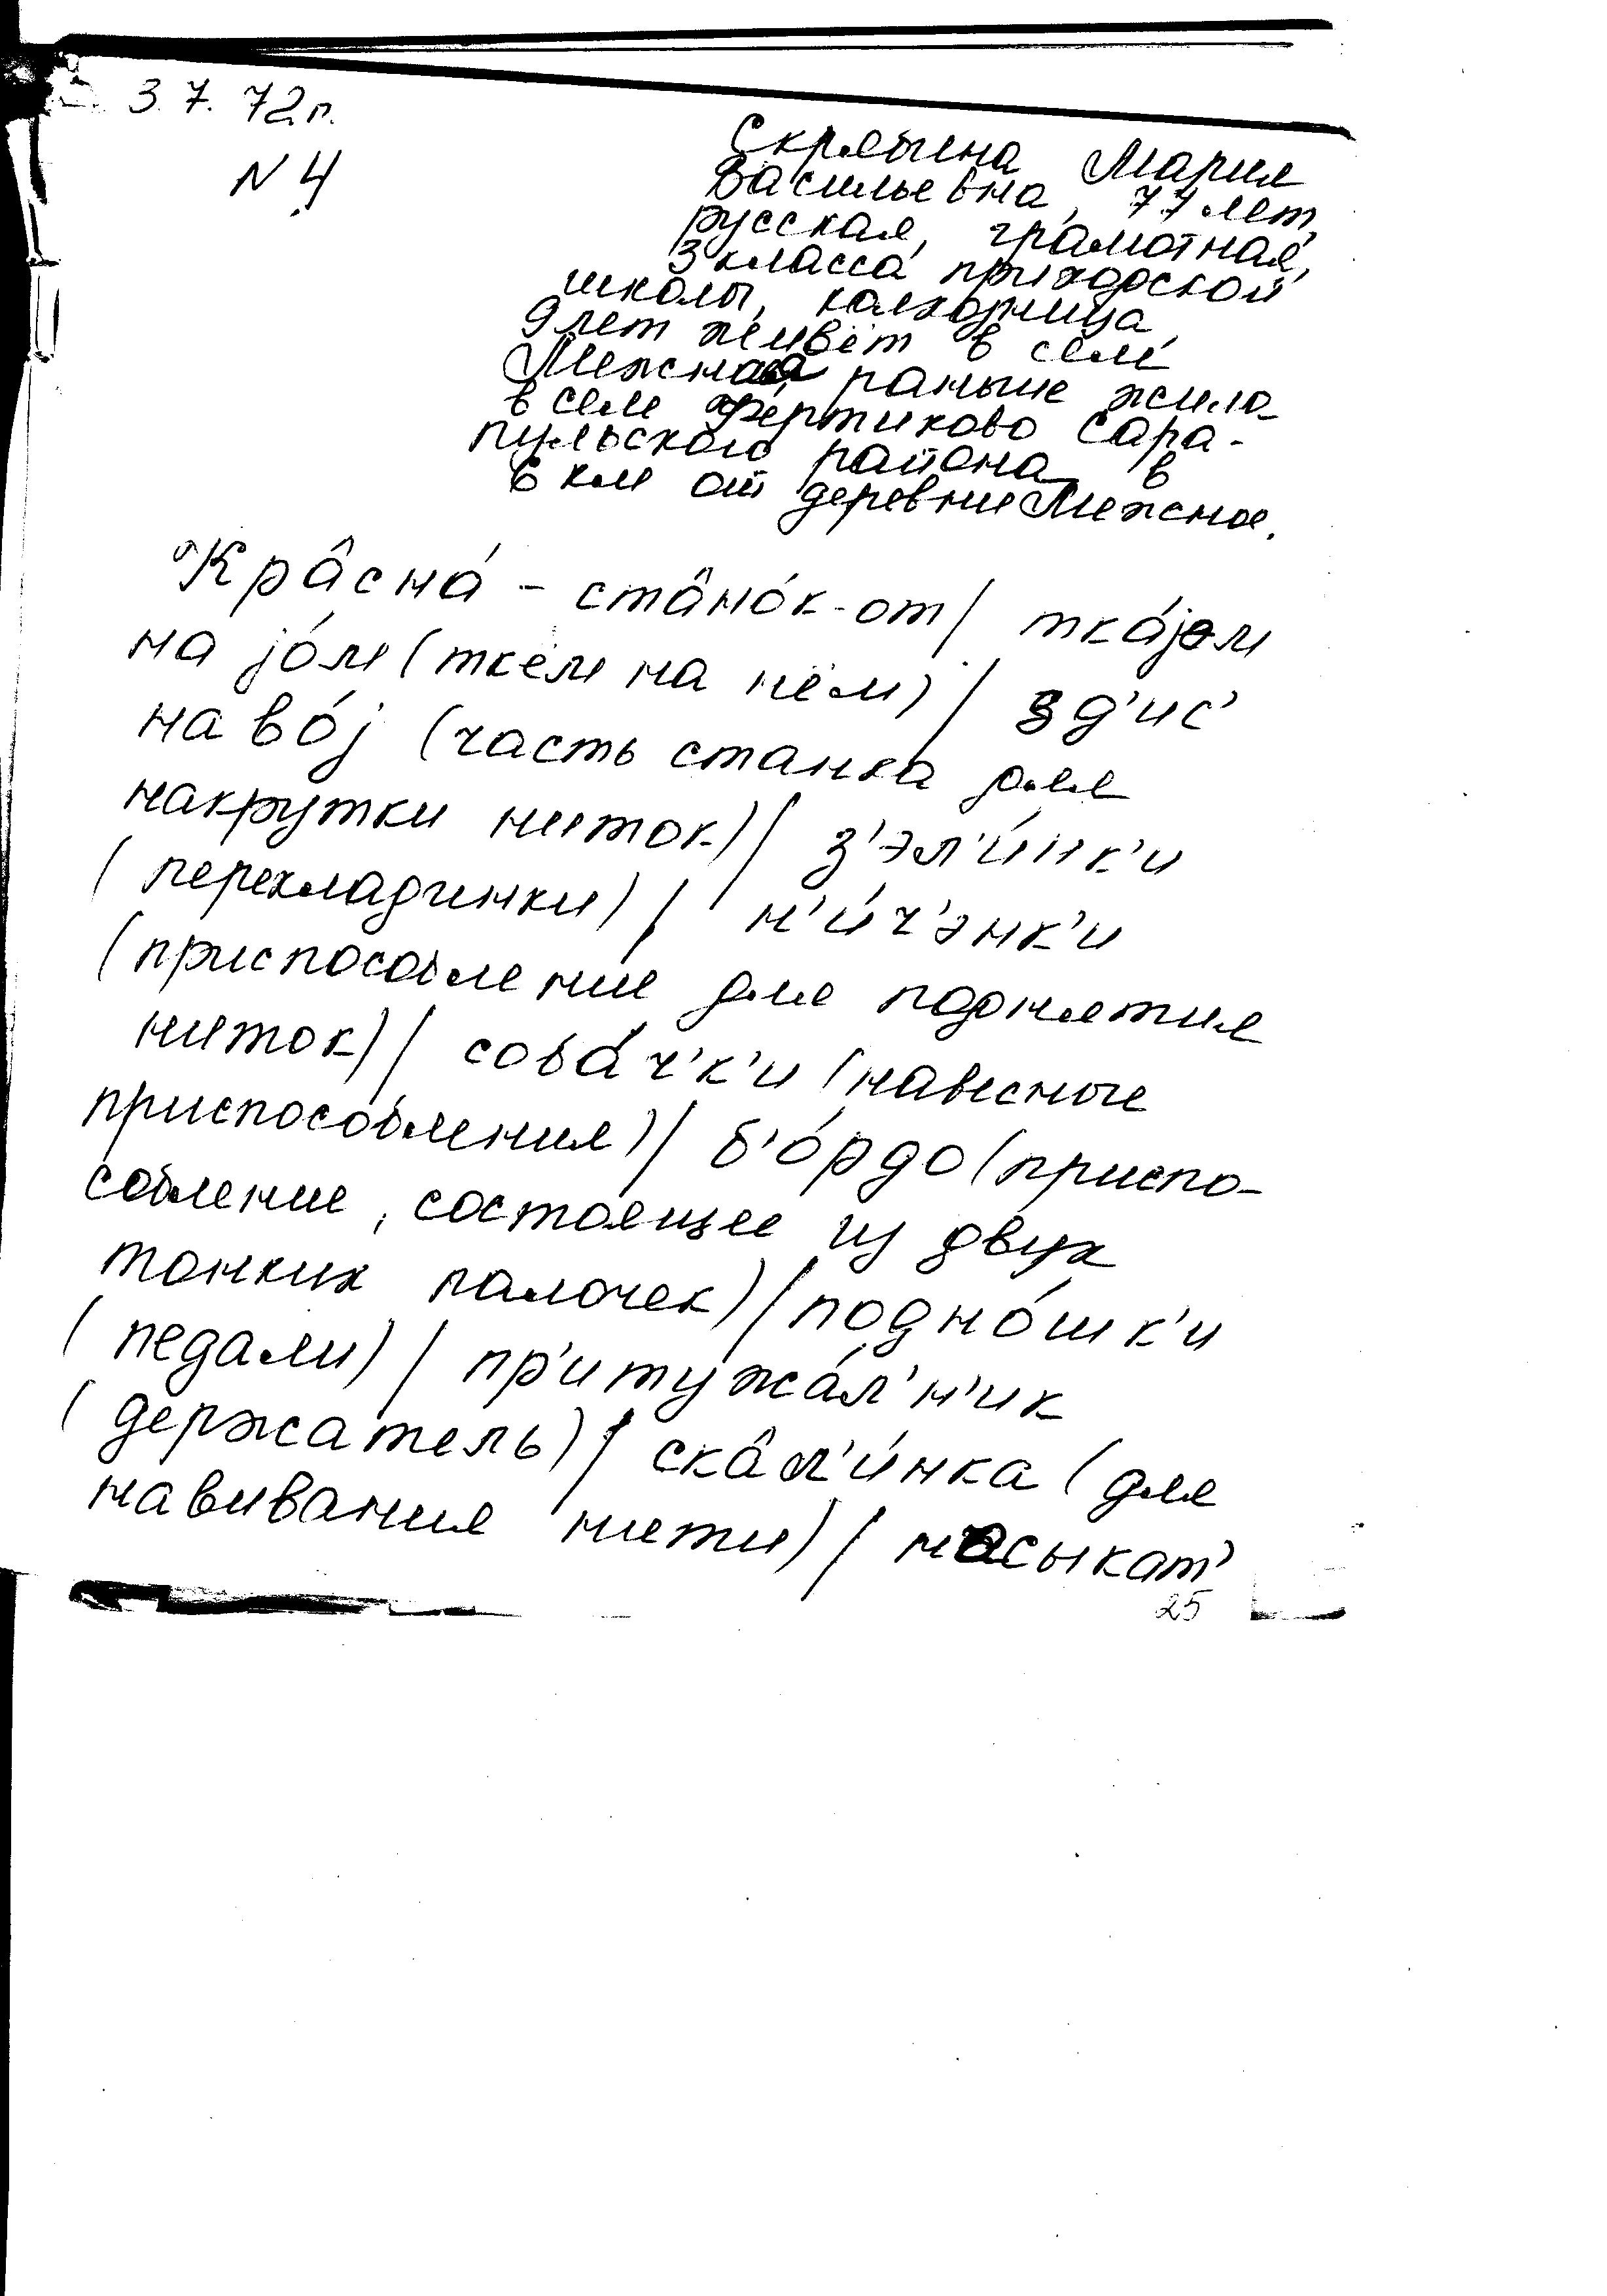 3.7.72 г.
N 4
Скрябина Мария
Васильевна, 77 лет,
русская, грамотная,
3 класса приходской
школы, колхозница
9 лет живёт в селе
Межная, раньше жила
в селе Фертиково Сара-
пульского района в
6 км от деревни Межное.
Крâсна́ - стâно́к-от/ тка́jом
на jо́м (ткём на нём)/ зд'ис'
наво́j (часть станка для
накрутки ниток)/ з'эл'и́нк'и
(перекладинки)/ н'и́ч'энк'и
(приспособление для поднятия
ниток)/ соба́ч'к'и (навесные
приспособления)/ б'о́рдо (приспо-
собление, состоящее из двух
тонких палочек)/ подно́шк'и
(педали)/ пр'итужа́л'н'ик
(держатель)/ скâл'и́нка (для
навивания нити)/ насыкат'
25